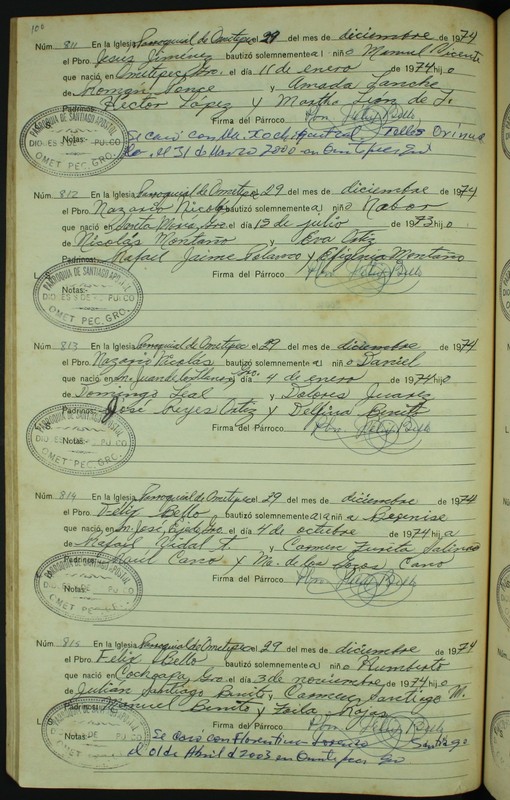 100
Núm. 811 En la Iglesia Parroquial de Ometepec el 29 del mes de diciembre de 1974
el Pbro. Jesús Jiménez bautizó solemnemente a l niño Manuel Vicente
que nació en Ometepec, Gro. el día 11 de enero de 1974 hijo
de Román Ponce y Amada Sanche
Padrinos: Héctor López y Martha León de L.
L. S. Firma del Párroco
PARROQUIA DE SANTIAGO APOSTOL
OMETEPEC, GRO.
Notas: Se casó con Ma.
el 31 de Marzo 2000 en Ometepec Gro
Núm. 812 En la Iglesia Parroquial de Ometepec 29 del mes de diciembre de 1974
el Pbro. Nazario Nicolás bautizó solemnemente a niño Nabor
que nació en Santa María, Gro. el día 13 de julio de 1973 hijo
de Nicolás Montaño y Eva Ortiz
Padrinos: Rafael Jaime y Montaño
L. S. Firma del Párroco
PARROQUIA DE SANTIAGO APOSTOL
OMETEPEC, GRO.
Notas:
Núm. 813 En la Iglesia Parroquial de Ometepec el 29 del mes de diciembre de 1974
el Pbro. Nazario Nicolás bautizó solemnemente a l niño Daniel
que nació en Sn. Juan de los Llanos, Gro. día 4 de enero de 1974 hijo
de Domingo Leal y Dolores Juarez
Padrinos: José Reyes Ortiz y Delfina Benito
Firma del Párroco
PARROQUIA DE SANTIAGO APOSTOL
OMETEPEC, GRO.
Notas:
Núm. 814 En la Iglesia Parroquial de Ometepec el 29 del mes de diciembre de 1974
el Pbro. Félix Bello bautizó solemnemente a la niña Berenise
que nació en Sn. José, el día 4 de octubre de 1974 hija
de Rafael Vidal T. y Carmen Zurita Salinas
Padrinos: Raúl Cano y Ma. de los Cano
Firma del Párroco
PARROQUIA DE SANTIAGO APOSTOL
OMETEPEC, GRO.
Notas:
Núm. 815 En la Iglesia Parroquial de Ometepec el 29 del mes de diciembre de 1974
el Pbro. Félix Bello bautizó solemnemente a l niño Humberto
que nació en Cochoapa, Gro. el día 3 de noviembre de 1974 hijo
de Julián Santiago Benito y Carmen Santiago M.
Padrinos: Manuel Benito y Rojas
L. Firma del Párroco
PARROQUIA DE SANTIAGO APOSTOL
OMETEPEC, GRO.
Notas: Se casó con Florentina Santiago
el 01 de Abril d 2003 en Ometepec Gro